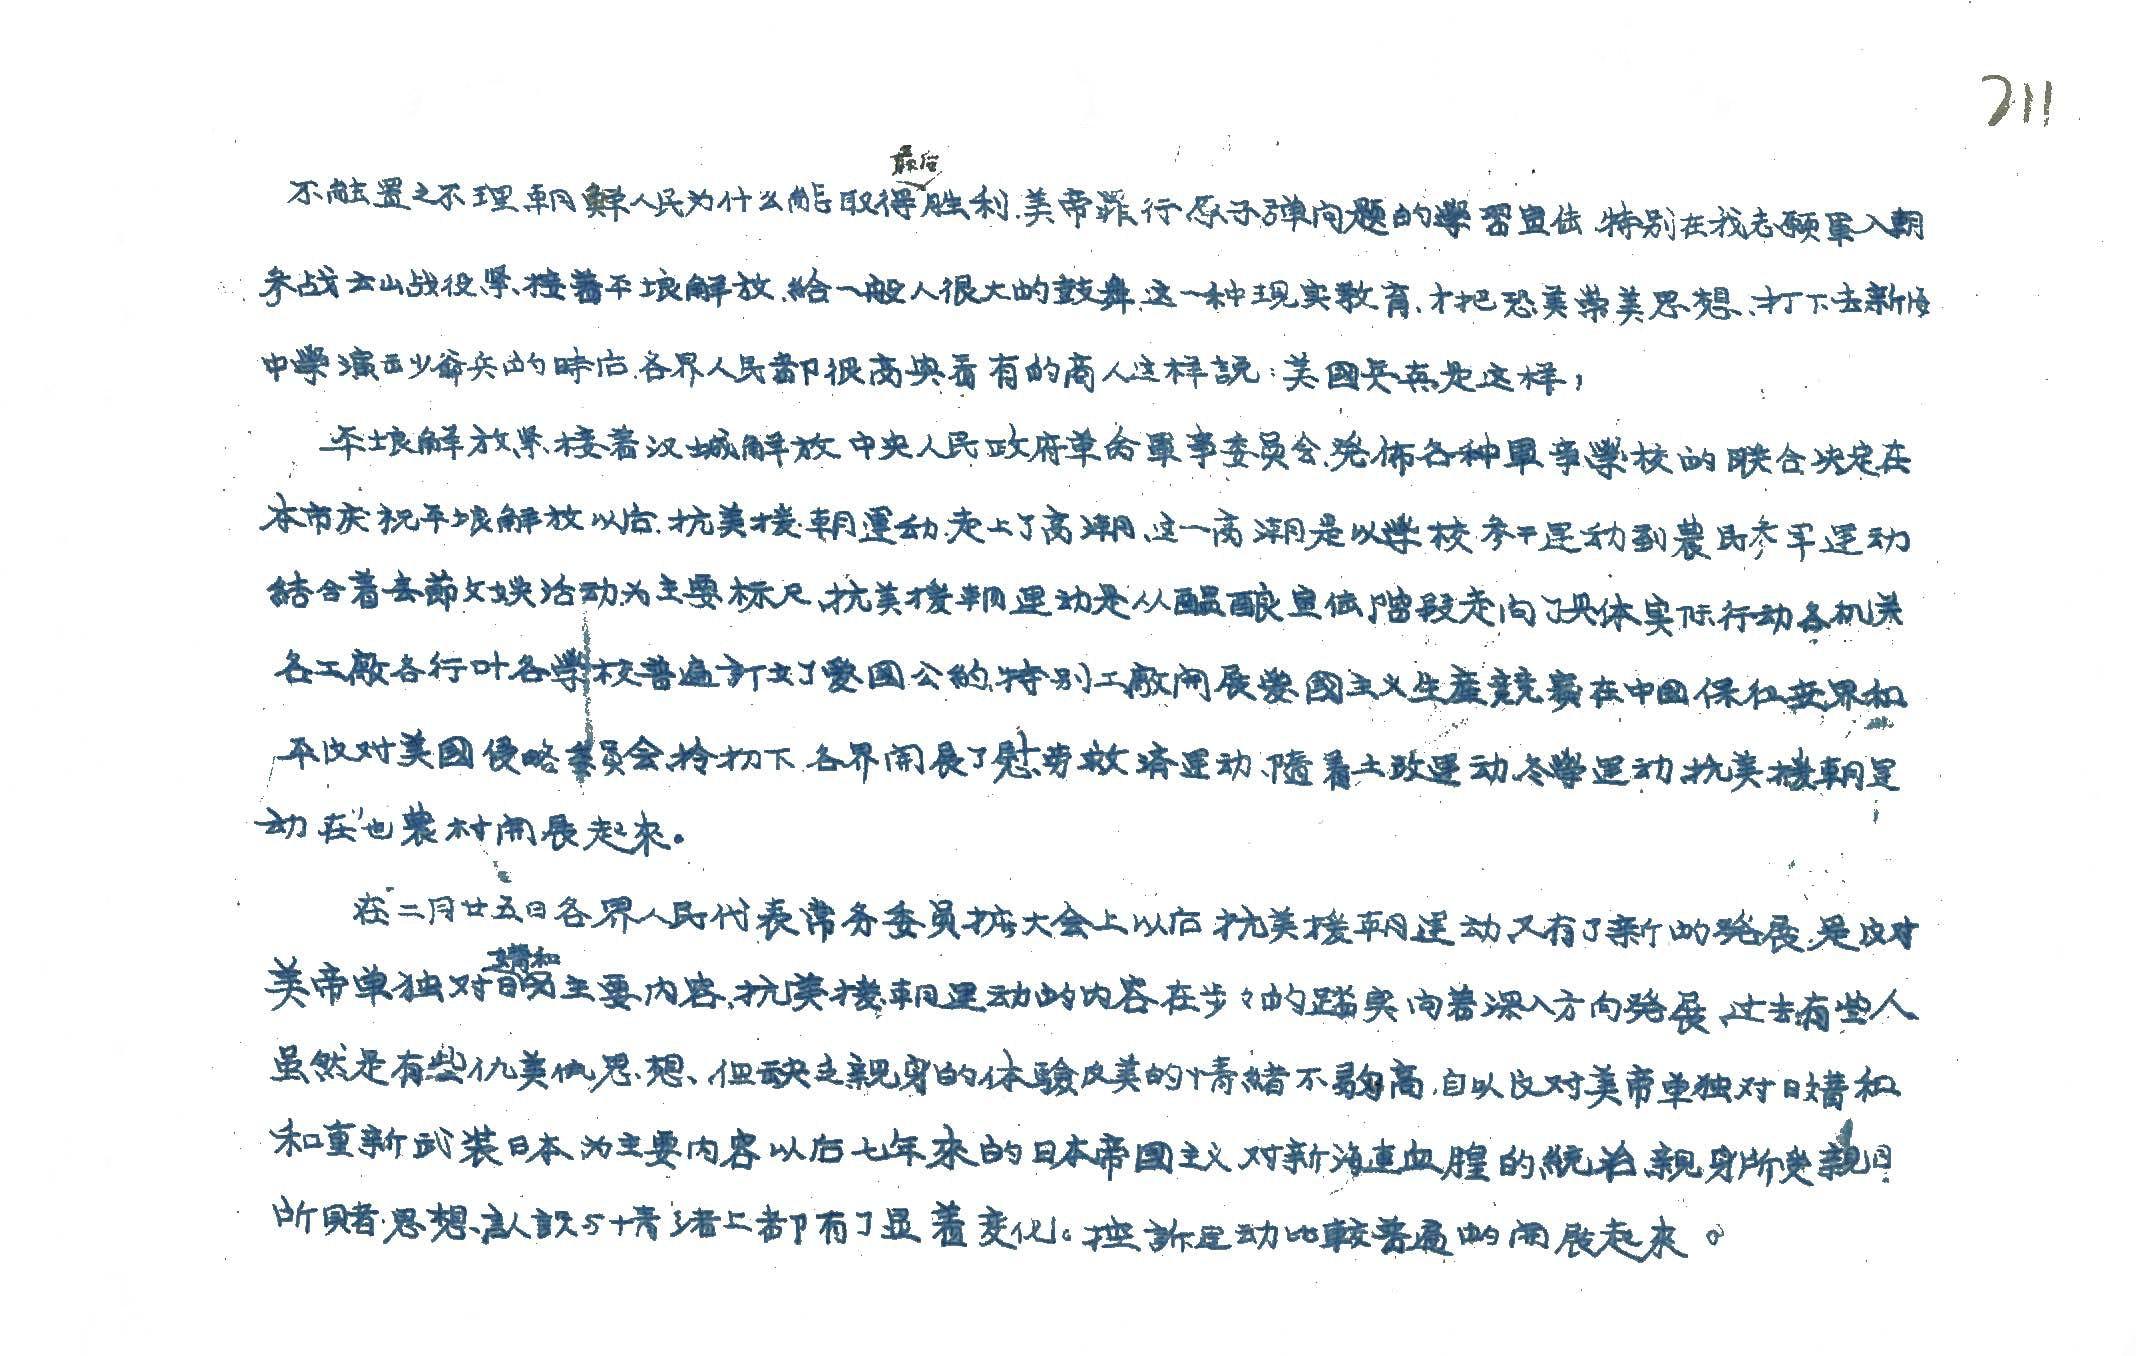 211
不能置之不理朝鮮人民为什么能取得最后胜利、美帝罪行原子弹问题的學習宣传、特别在我志願軍入朝
参战云山战役、紧接着平壤解放、給一般人很大的鼓舞、这一种现实教育、才把恐美崇美思想、打下去新海
中學演出少爺兵的時后、各界人民都很高興看有的商人这样說：美國兵真是这样，
平壤解放紧接着汉城解放中央人民政府革命軍事委员会、発佈各种軍事學校的联合决定在
本市庆祝平壤解放以后、抗美援朝運动、走上了高潮、这一高潮是以學校参干运动到農民参军運动
結合着春節文娱活动为主要标尺、抗美援朝運动是从醖釀宣传階段走向了具体实际行动各机关
各工廠各行叶各學校普遍訂立了愛國公約、特别工廠開展愛國主义生產競赛在中國保衛世界和
平反对美國侵略委員会、号招下、各界開展了慰劳救済運动、隨着土改運动、冬學運动、抗美援朝運
动在也農村開展起來。
在二月廿五日各界人民代表常务委員扩大会上以后抗美援朝運动又有了新的発展、是反对
美帝单独对日媾和为主要内容、抗美援朝運动的内容在步々的踏実向着深入方向発展、过去有些人
虽然是有些仇美仇思想、但缺乏親身的体驗反美的情緒不夠高、自以反对美帝单独对日媾和
和重新武装日本为主要内容以后七年來的日本帝國主义对新海連血腥的統治、親身所受親目
所見者、思想、認識与情緒上都有了显著变化。控訴运动比較普遍的開展起來。